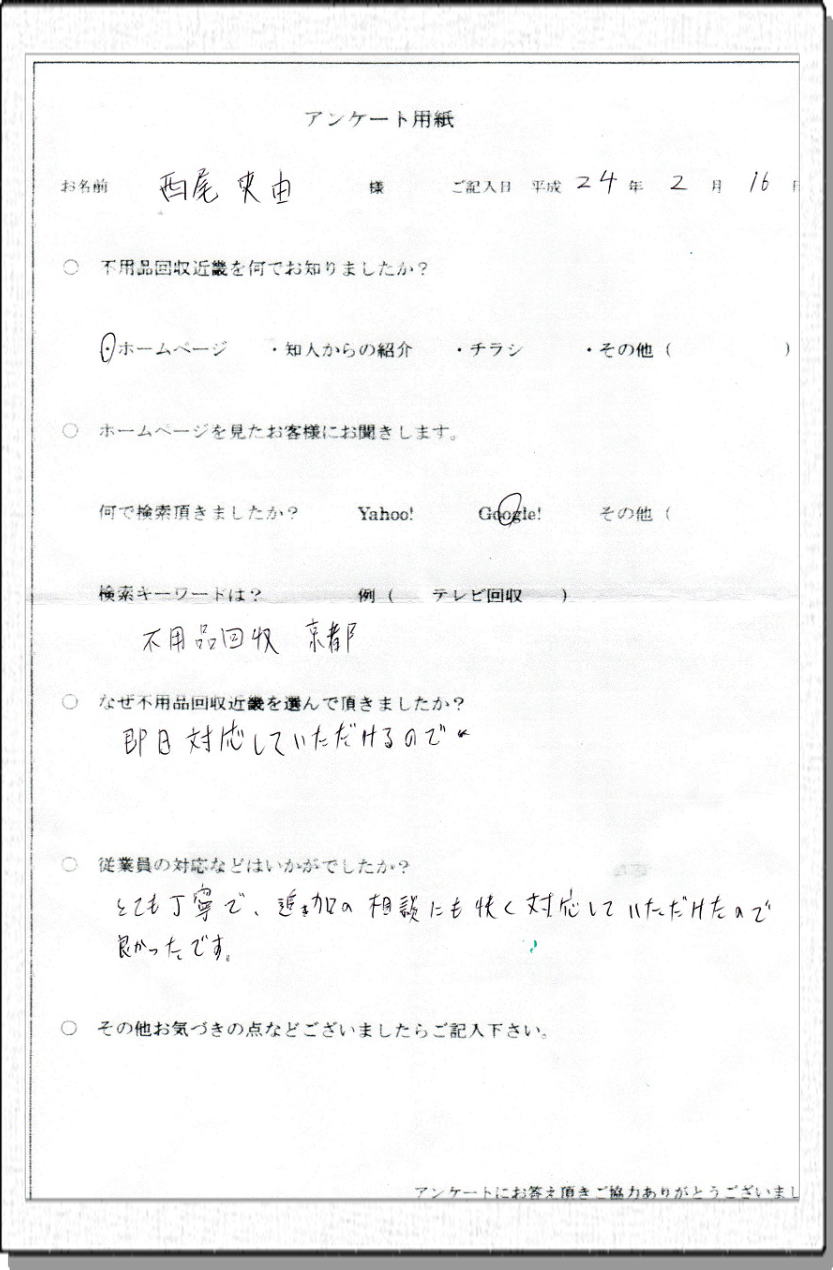 アンケート用紙
お名前 西尾 由 様 ご記入日 平成 24 年 2 月 16
○ 不用品回収近畿を何でお知りましたか？
・ホームページ ・知人からの紹介 ・チラシ ・その他（ ）
○ ホームページを見たお客様にお聞きします。
何で検索頂きましたか？ Yahoo! Google! その他（
検索キーワードは？ 例（ テレビ回収 ）
不用品回収 京都
○ なぜ不用品回収近畿を選んで頂きましたか？
即日対応していただけるので
○ 従業員の対応などはいかがでしたか？
とても丁寧で、追加の相談にも快く対応していただけたので
良かったです。
○ その他お気づきの点などございましたらご記入下さい。
アンケートにお答え頂きご協力ありがとうございまし